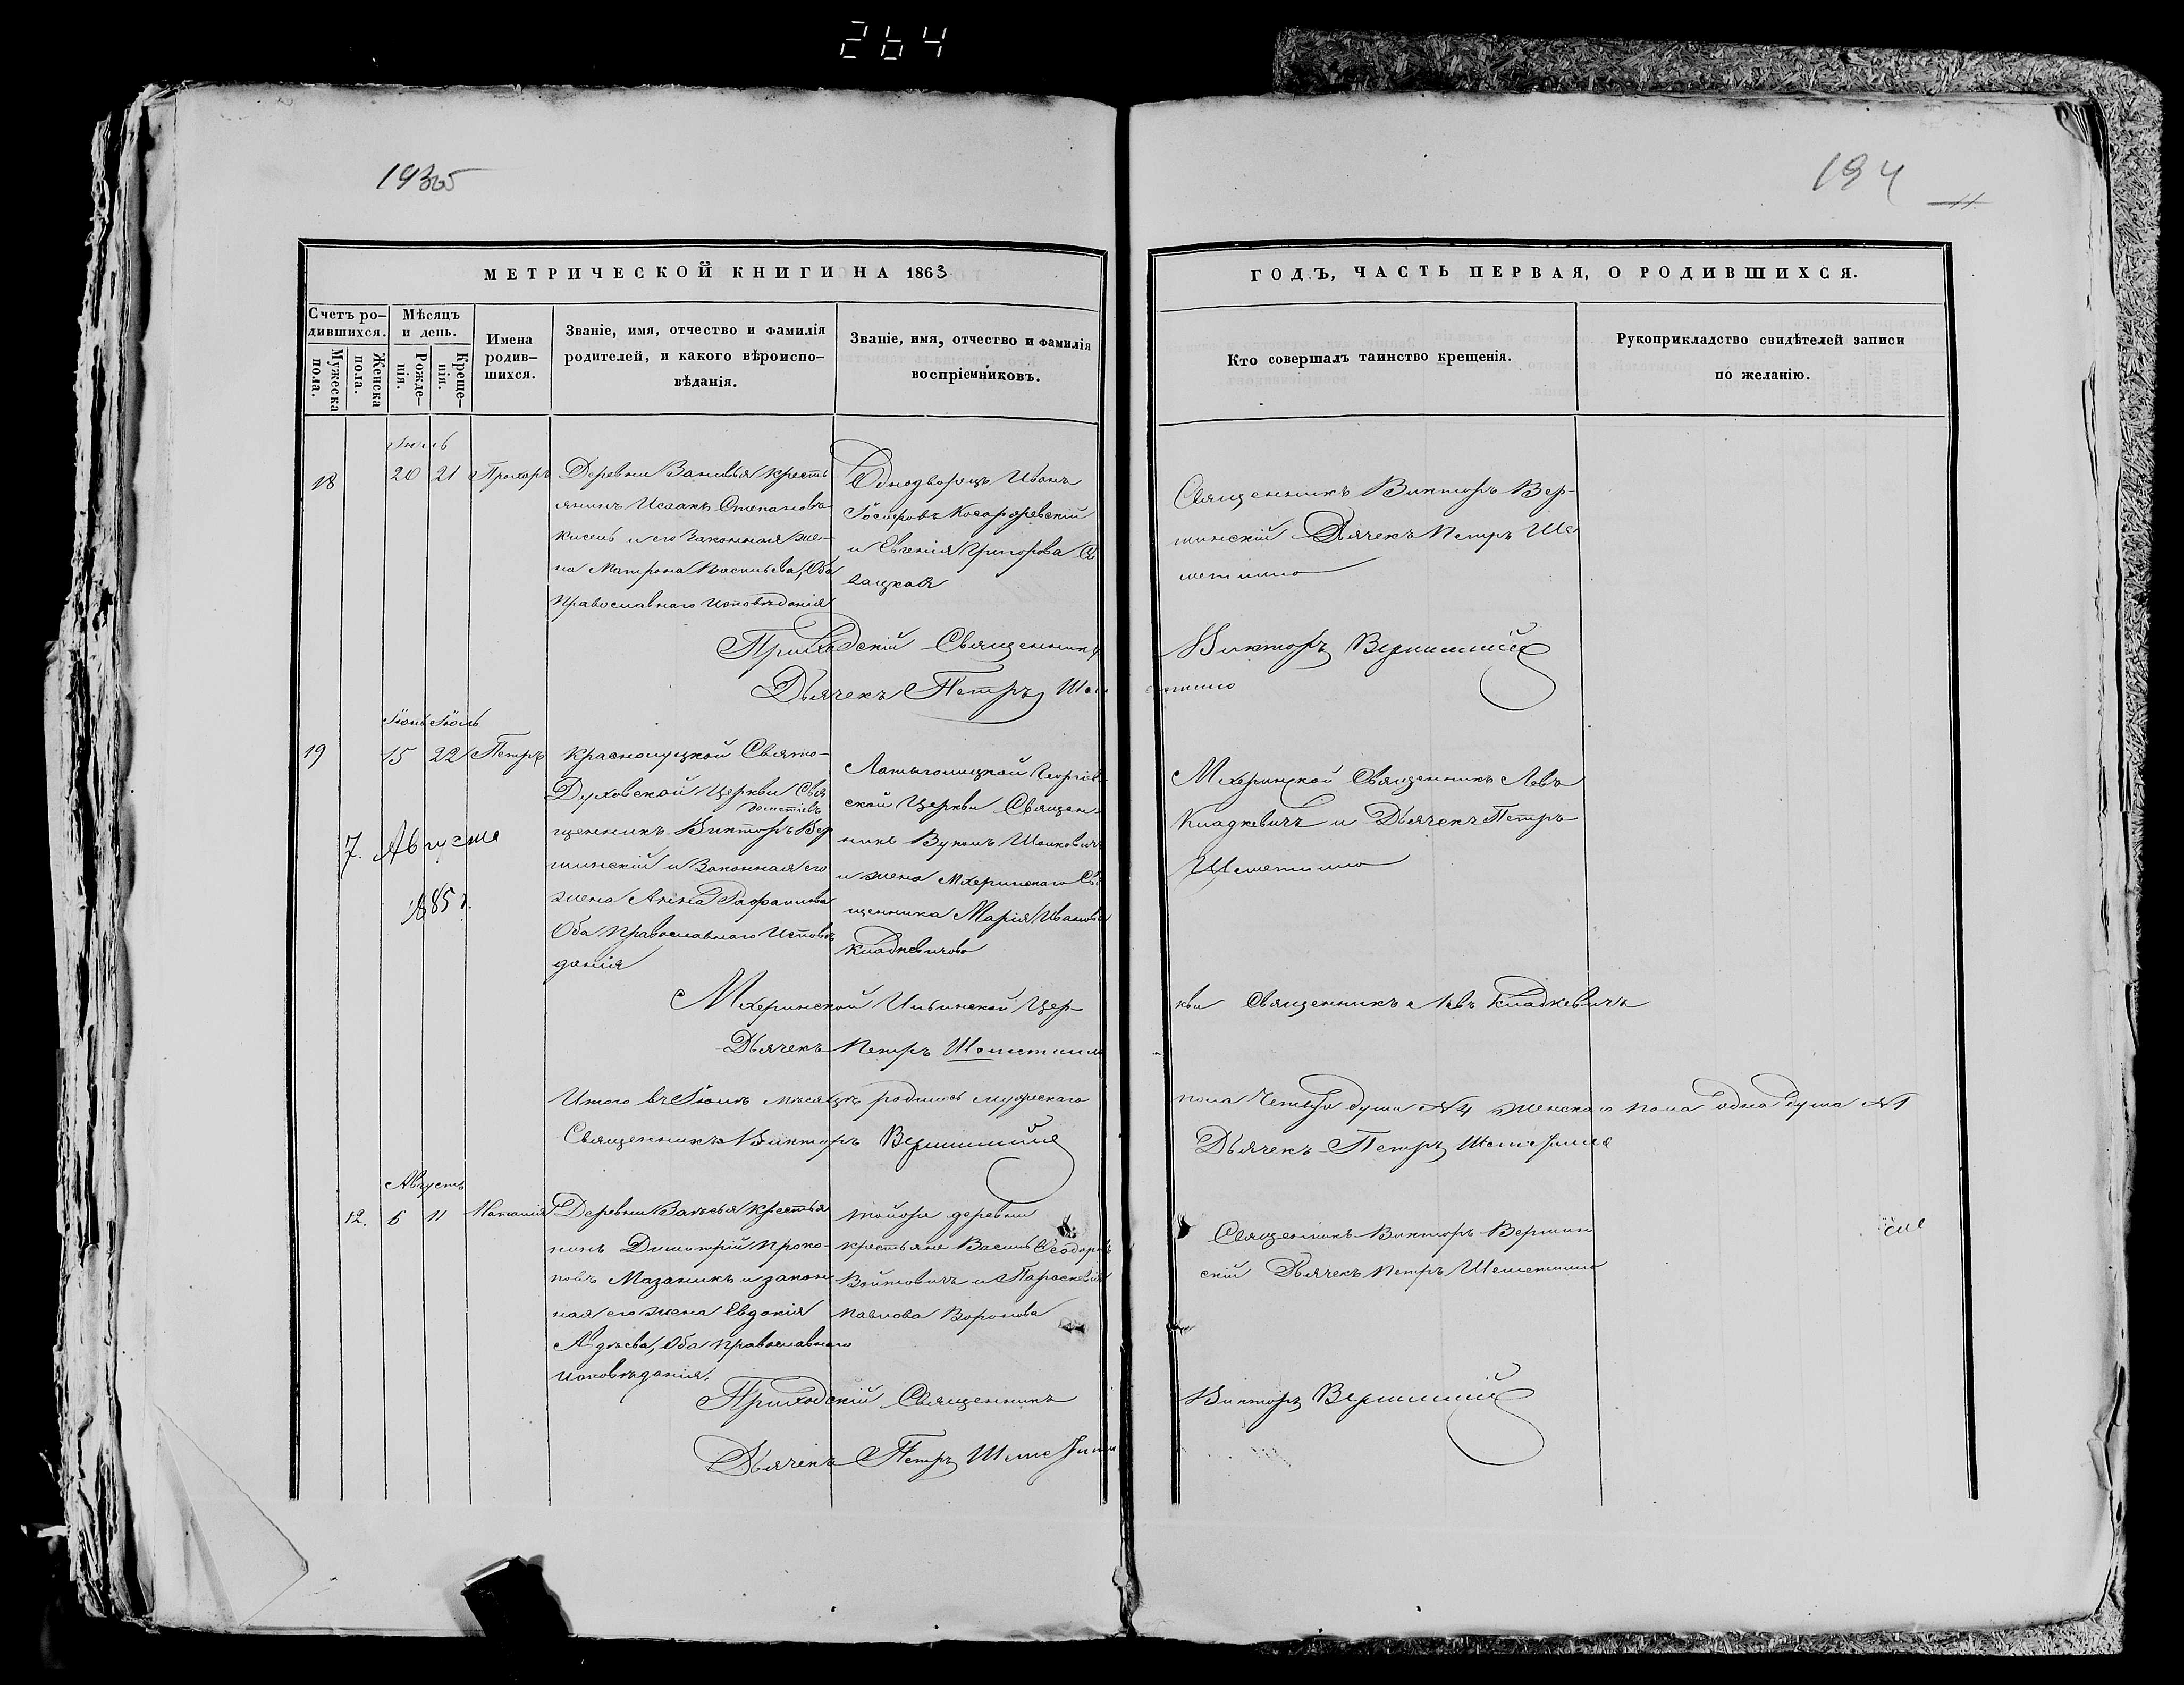 264
194
МЕТРИЧЕСКОЙ КНИГИ НА 1863
ГОДЪ, ЧАСТЬ ПЕРВАЯ, О РОДИВШИХСЯ.
Счетъ ро-
дившихся.
Мужеска
пола.
Женска
пола.
Мѣсяцъ
и день.
Рожде-
нія.
Креще-
нія.
Имена
родив-
шихся.
Званіе, имя, отчество и фамилія
родителей, и какого вѣроиспо-
вѣданія.
Званіе, имя, отчество и фамилія
воспріемниковъ.
Кто совершалъ таинство крещенія.
Рукоприкладство свидѣтелей записи
по желанію.
Іюль
18 20 21 Прохоръ
Деревни крестъ
янинъ Исаакъ Степановъ
Кисель и его законная же-
на Матрона Васильева, оба
православнаго исповѣданія
Однодворецъ Иванъ
и Евгенія Григорова
Священникъ Викторъ Вер-
шинскій Дьячекъ Петръ
Приходскій Священникъ
Викторъ Вершинскій
Дьячекъ Петръ
Іюнь Іюль
19 15 22 Петръ
Краснолуцкой Свято-
Духовской Церкви Свя
щенникъ Викторъ Вер
шинскій и законная его
жена Анна
Оба православнаго исповѣ
данія
7. Августа
1885 г.
ской Церкви Священ-
никъ
и жена Мхеринскаго Свя
щенника Марія Иванова
Кладкевичова
Мхеринской Священникъ Левъ
Кладкевичъ и Дьячекъ Петръ
Мхеринской Ильинской Цер-
кви Священникъ Левъ Кладкевичъ
Дьячекъ Петръ
Итого въ Іюлѣ мѣсяцѣ родилось мужескаго
пола четыре души №4 женскаго пола одна душа №1
Священникъ Викторъ Вершинскій
Дьячекъ Петръ
Августъ
12. 6 11
Деревни крестья
нинъ Димитрій Проко-
повъ Мазаникъ и закон
ная его жена Евдокія
Авдѣева, оба православнаго
исповѣданія.
тойже деревни
крестьяне Василь Ѳеодоровъ
Войтовичъ и Параскевія
Павлова Воронова
Священникъ Викторъ Вершин
скій Дьячекъ Петръ
Приходскій Священникъ
Викторъ Вершинскій
Дьячекъ Петръ